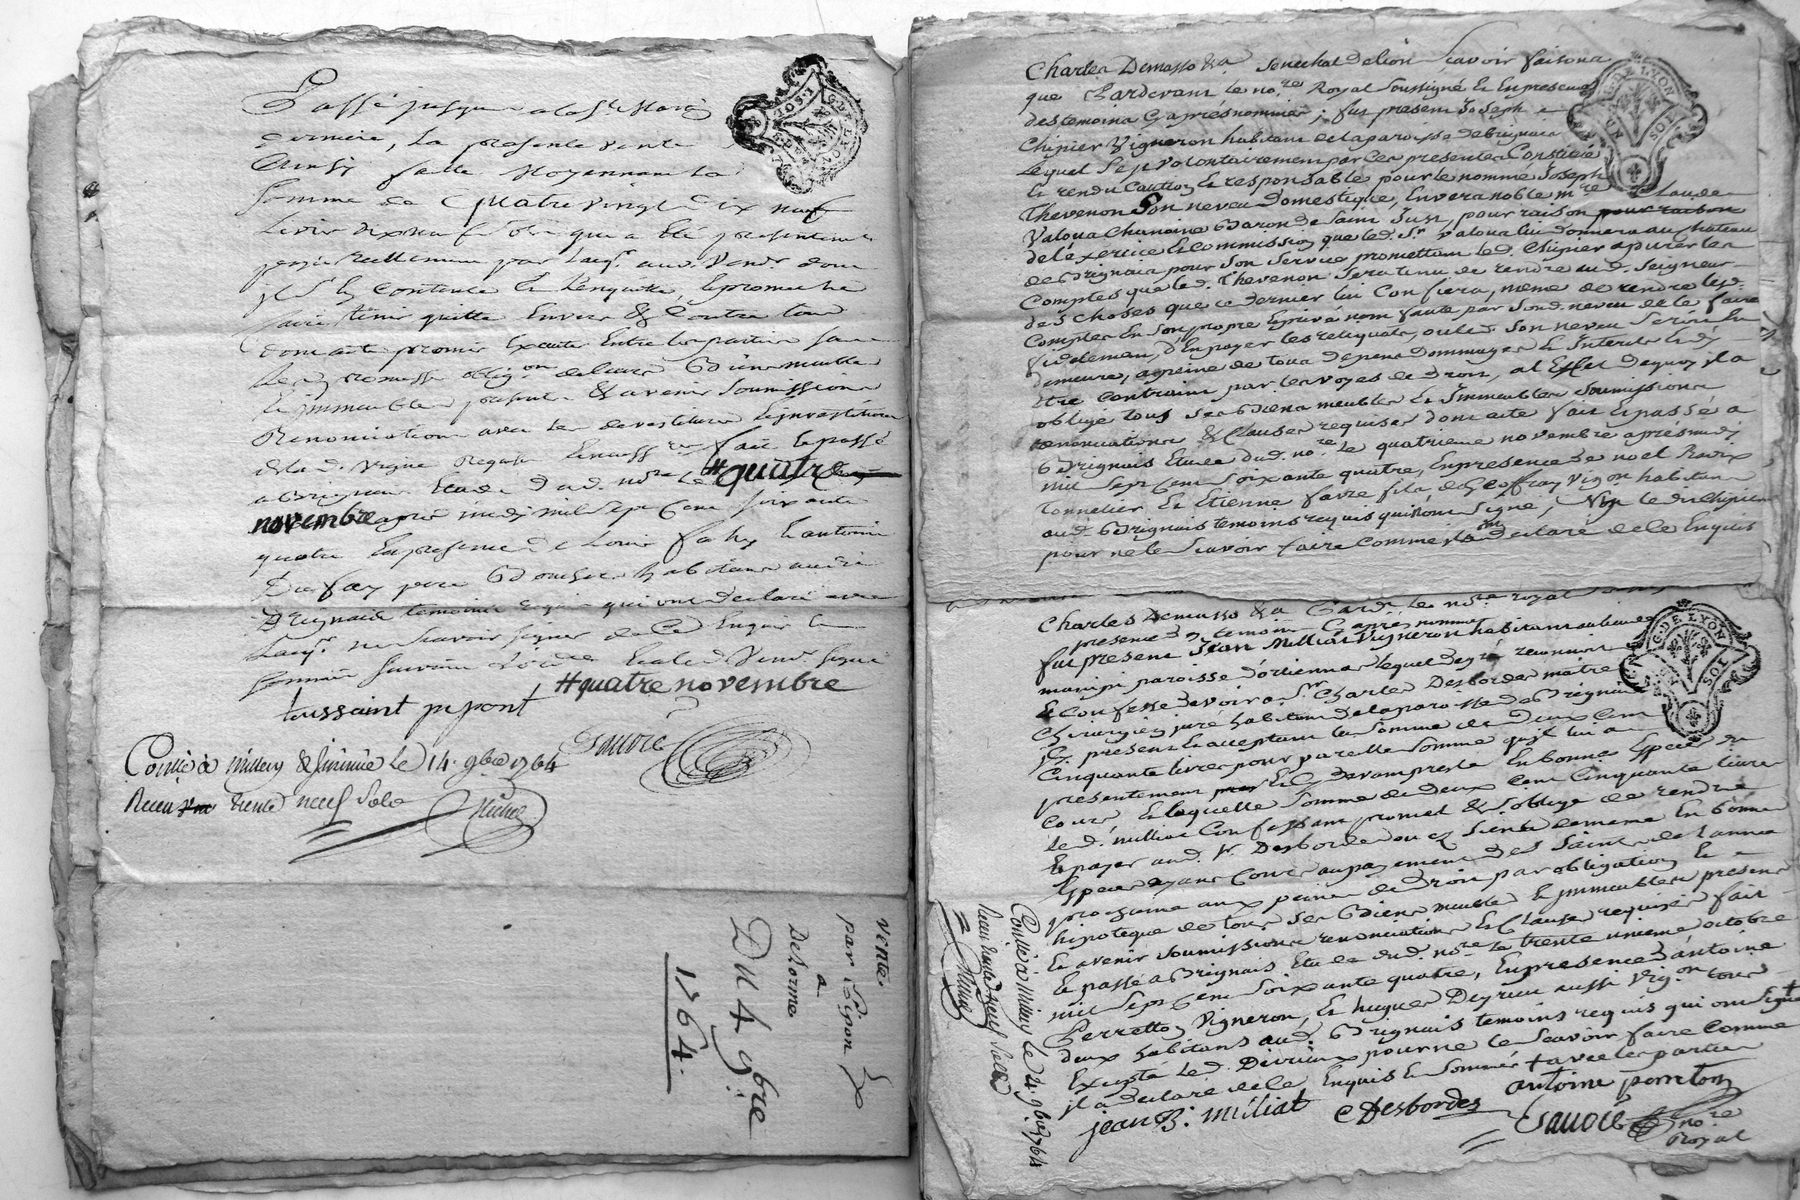 Passé jusques a la St Martin
derniere, La presente vente
Ainsy faitte Moyennant la
somme de Quatre vingt dix neuf
Livres dix neuf sols qui a été presentement
payé reellement par
il s'est contenté et l'en quitte, et promet le
faire tenir quitte Envers & Contre tous
dont acte promis Executer Entre les parties sans
les promesses oblig.on de leurs Biens meubles
et immeubles presents & avenir soumissions
Renonciations avec les devestiture et investiture
fait et passé
a Brignais Etude dud. no.re le #quatre
novembre apres midy mil sept Cens soixante
quatre En presence de Louis fahy et antoine
Du fay pere habitans audit
Brignais temoins requis qui ont declaré avec
ne sçavoir signer de Ce Enquis et
sommés suivant l'ord.ce Et a led. Vend.r signé
#quatre novembre
toussaint pipont
Savoie
Con.lé à Millery & insinué le 14. 9bre 1764
Reçeu trente neuf sols
vente
par Pipon
a
Delorme
Du 4 9bre
1764.
G. DE LYON
UN SOL
Charles Demasso &a Senechal de Lion sçavoir faisons
que Pardevant le no.re Royal soussigné & En presence
des temoins Cy aprés nommés, fut present Joseph
Chipier Vigneron habitant de la paroisse de Brignais
Lequel s'est volontairement par Ces presentes Constitué
et rendu Caution et responsable pour le nomme Joseph
Thevenon Son neveu domestique, Envers noble m.re Claude
Valous Chanoine Baron de Saint Just, pour raison pour raison
de l'exercice et Commission que led. Sr Valous lui donnera au chateau
de Brignais pour son service promettant led. Chipier apurer les
Comptes que led. Thevenon sera tenu de rendre aud. Seigneur
des Choses que ce dernier lui Confiera, meme de rendre lesd.
Comptes En son propre et privé nom faute par sond. neveu de le faire
fidelement, d'En payer les reliquats, ou led. son neveu seroit En
demeure, a peine de tous depens dommages et Interets & dy
Etre Contraint par les voyes de droit, a l'Effet dequoy il a
obligé tous ses Biens meubles et immeubles soumissions
renonciations & Clauses requises dont acte fait et passé a
Brignais Etude dud. no.re le quatrieme novembre aprés midy
mil sept Cens soixante quatre, En presence de noel Roux
tonnelier et Etienne favre fils de Geoffray Vig.on habitans
aud. Brignais temoins requis qui n'ont signé, Ny led. Chipier
pour ne le sçavoir faire Comme ils ont declaré de Ce Enquis
Charles Demasso &a Pard.t le no.re royal
presence de temoins Cy apres nommés
fut present Jean Milliat Vigneron habitant au lieu de
manipi paroisse d'orlienas lequel de gre reconnoit
et Confesse devoir a Sr Charles Desbordes maitre
Chirurgien juré habitant de la paroisse de Brignais
Cy present et acceptant la somme de deux Cens
Cinquante livres pour pareille somme qu'il lui a
presentement Cy devant preste En bonnes Especes du
Cours Et laquelle somme de deux Cens Cinquante livres
led. milliat Confessant promet & s'oblige de rendre
et payer aud. Sr Desbordes ou es siens de meme En bonnes
Especes ayans Cours au payement des Saints de l'année
prochaine aux peines de droit par obligation et
hipoteque de tous ses Biens meubles et immeubles presens
et avenir soumissions renonciations et Clauses requises fait
et passé a Brignais Etude dud. no.re le trente unieme octobre
mil sept Cens soixante quatre, En presence d'antoine
Perretton Vigneron, et hugues Devrieu aussi Vig.on tous
deux habitans aud. Brignais temoins requis qui ont signé
Excepté led. Devrieux pour ne le sçavoir faire comme
il a declaré de Ce Enquis et sommé avec les parties
antoine perreton
jean B. miliat
CDesbordes
Savoie no.re
Royal
Con.lé à Millery le 4 9bre 1764
Reçeu trente neuf sols
G. DE LYON
UN SOL